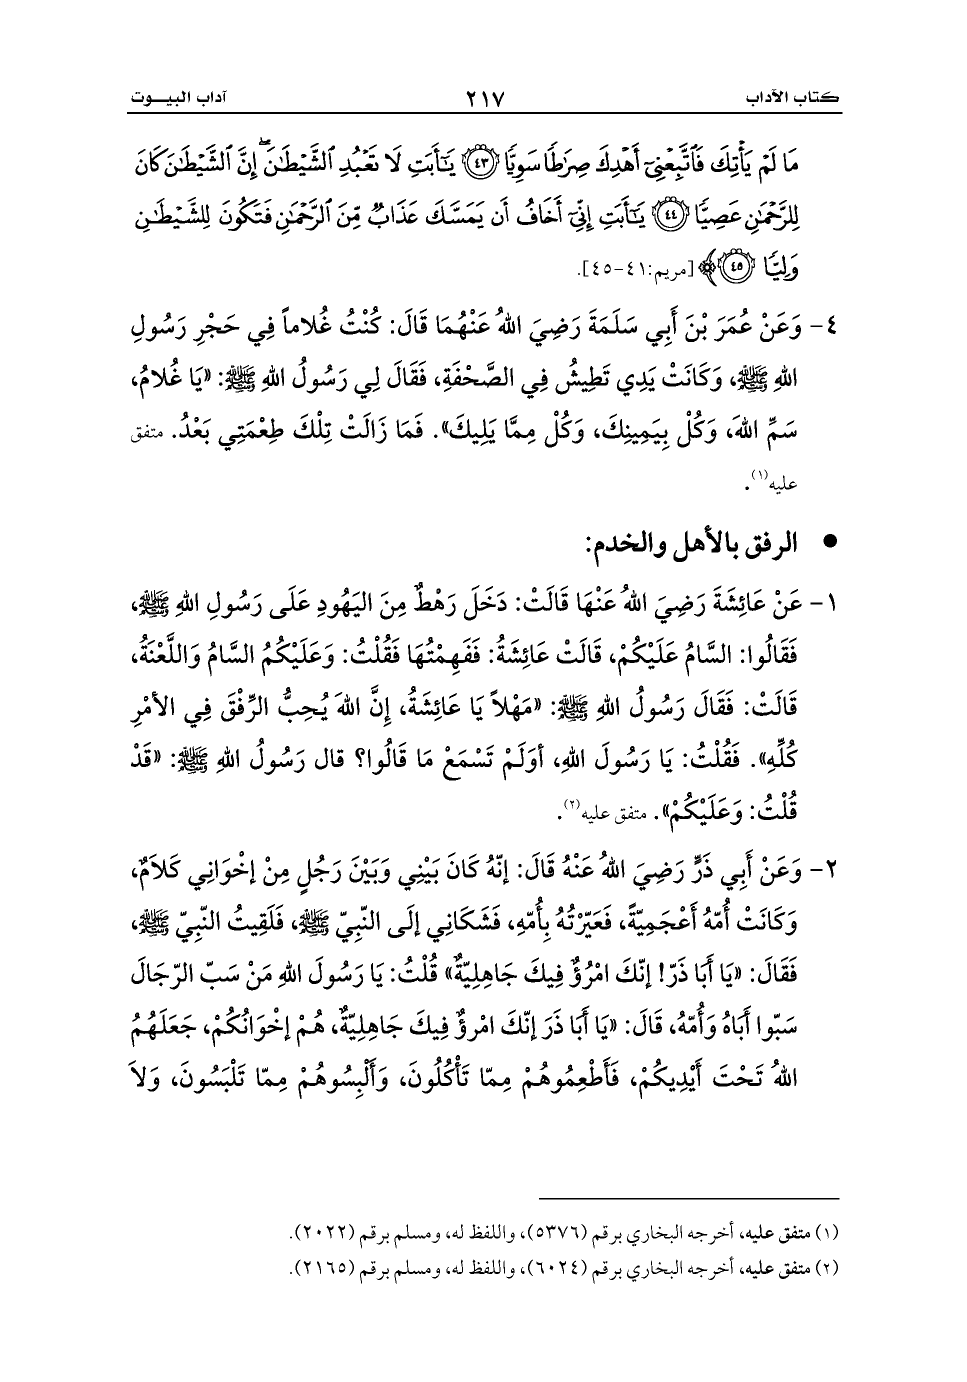 كتاب الآداب ٢١٧ آداب البيـــوت
مَا لَمْ يَأْتِكَ فَٱتَّبِعْنِىٓ أَهْدِكَ صِرَٰطًا سَوِيًّا ﴿٤٣﴾ يَٰٓأَبَتِ لَا تَعْبُدِ ٱلشَّيْطَٰنَ ۖ إِنَّ ٱلشَّيْطَٰنَ كَانَ
لِلرَّحْمَٰنِ عَصِيًّا ﴿٤٤﴾ يَٰٓأَبَتِ إِنِّىٓ أَخَافُ أَن يَمَسَّكَ عَذَابٌ مِّنَ ٱلرَّحْمَٰنِ فَتَكُونَ لِلشَّيْطَٰنِ
وَلِيًّا ﴿٤٥﴾﴾ [مريم:٤١-٤٥].
٤- وَعَنْ عُمَرَ بْنَ أَبِي سَلَمَةَ رَضِيَ اللهُ عَنْهُمَا قَالَ: كُنْتُ غُلاماً فِي حَجْرِ رَسُولِ
اللهِ ﷺ، وَكَانَتْ يَدِي تَطِيشُ فِي الصَّحْفَةِ، فَقَالَ لِي رَسُولُ اللهِ ﷺ: «يَا غُلامُ،
سَمِّ اللهَ، وَكُلْ بِيَمِينِكَ، وَكُلْ مِمَّا يَلِيكَ». فَمَا زَالَتْ تِلْكَ طِعْمَتِي بَعْدُ. متفق
عليه(١).
● الرفق بالأهل والخدم:
١- عَنْ عَائِشَةَ رَضِيَ اللهُ عَنْهَا قَالَتْ: دَخَلَ رَهْطٌ مِنَ اليَهُودِ عَلَى رَسُولِ اللهِ ﷺ،
فَقَالُوا: السَّامُ عَلَيْكُمْ، قَالَتْ عَائِشَةُ: فَفَهِمْتُهَا فَقُلْتُ: وَعَلَيْكُمُ السَّامُ وَاللَّعْنَةُ،
قَالَتْ: فَقَالَ رَسُولُ اللهِ ﷺ: «مَهْلاً يَا عَائِشَةُ، إِنَّ اللهَ يُحِبُّ الرِّفْقَ فِي الأَمْرِ
كُلِّهِ». فَقُلْتُ: يَا رَسُولَ اللهِ، أوَلَمْ تَسْمَعْ مَا قَالُوا؟ قال رَسُولُ اللهِ ﷺ: «قَدْ
قُلْتُ: وَعَلَيْكُمْ». متفق عليه(٢).
٢- وَعَنْ أَبِي ذَرٍّ رَضِيَ اللهُ عَنْهُ قَالَ: إنّهُ كَانَ بَيْنِي وَبَيْنَ رَجُلٍ مِنْ إخْوَانِي كَلاَمٌ،
وَكَانَتْ أُمّهُ أعْجَمِيّةً، فَعَيّرْتُهُ بِأُمّهِ، فَشَكَانِي إلَى النّبِيّ ﷺ، فَلَقِيتُ النّبِيّ ﷺ،
فَقَالَ: «يَا أَبَا ذَرّ! إنّكَ امْرُؤٌ فِيكَ جَاهِلِيّةٌ» قُلْتُ: يَا رَسُولَ اللهِ مَنْ سَبّ الرّجَالَ
سَبّوا أبَاهُ وَأُمّهُ، قَالَ: «يَا أبَا ذَرَ إنّكَ امْرؤٌ فِيكَ جَاهِلِيّةٌ، هُمْ إخْوَانُكُمْ، جَعَلَهُمُ
اللهُ تَحْتَ أَيْدِيكُمْ، فَأَطْعِمُوهُمْ مِمّا تَأْكُلُونَ، وَأَلْبِسُوهُمْ مِمّا تَلْبَسُونَ، وَلاَ
(١) متفق عليه، أخرجه البخاري برقم (٥٣٧٦)، واللفظ له، ومسلم برقم (٢٠٢٢).
(٢) متفق عليه، أخرجه البخاري برقم (٦٠٢٤)، واللفظ له، ومسلم برقم (٢١٦٥).